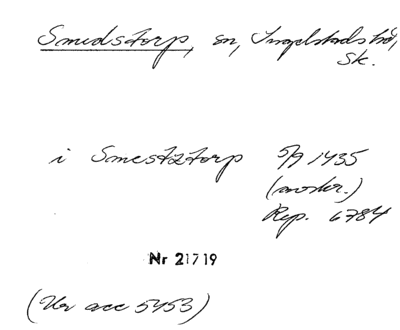 Smedstorp, sn, Ingelstads hd,
Sk.
i Smestztorp 5/9 1435
(avskr.)
Rep. 6784
Nr 21719
(Ur acc 5453)